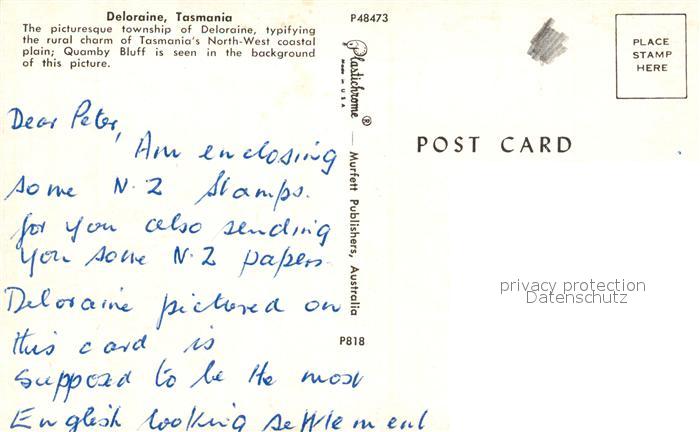 Deloraine, Tasmania
The picturesque township of Deloraine, typifying
the rural charm of Tasmania's North-West coastal
plain; Quamby Bluff is seen in the background
of this picture.
P48473
PLACE
STAMP
HERE
Plastichrome ®
MADE IN U.S.A.
— Murfett Publishers, Australia
P818
POST CARD
Dear Peter,
Am enclosing
some N.Z stamps.
for you also sending
you some N.Z papers.
Deloraine pictured on
this card is
supposed to be the most
English looking settlement
privacy protection
Datenschutz